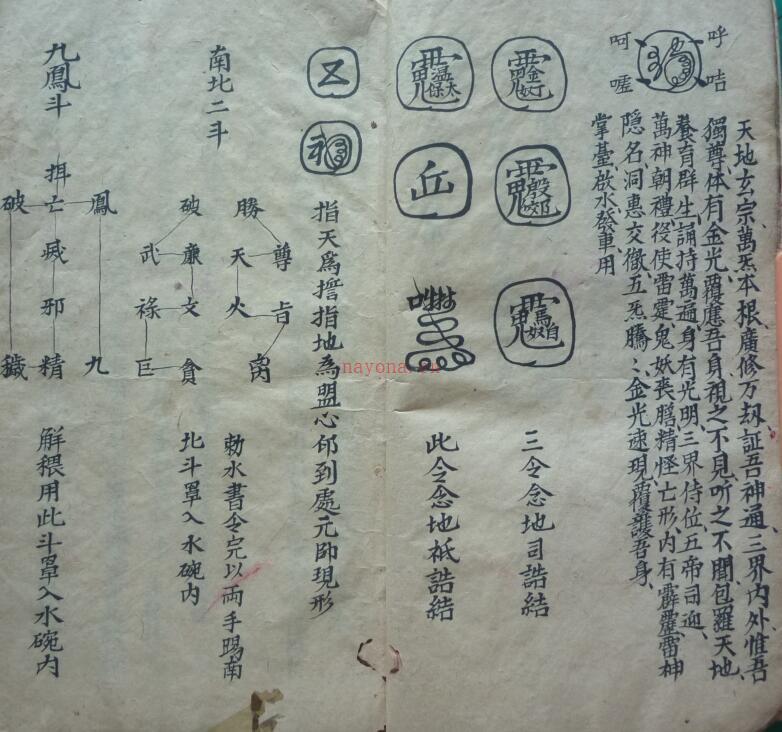 呼 咭
呵 嘘
天地玄宗萬炁本根、廣修万劫証吾神通、三界内外惟吾
獨尊、体有金光覆應吾身、視之不見、听之不聞、包羅天地
養育群生、誦持萬遍、身有光明、三界侍位、五帝司迎、
萬神朝禮、役使雷霆、鬼妖喪膽、精怪亡形、内有霹靂雷神
隐名、洞惠交徹、五炁騰々、金光速現、覆護吾身、
掌臺啟水發車用
三令念地司誥結
此令念地祇誥結
岳
指天爲擔指地為盟心仰到處元帥現形
南北二斗
勝 尊 天 火 㫖 离
破 武 廉 文 祿 巨 貪
勅水書令完以兩手賜南
北斗罩入水碗内
九鳳斗
鳳 九
揖 亡 滅 邪 精
破 鐵
解穢用此斗罩入水碗内
nayona.cn